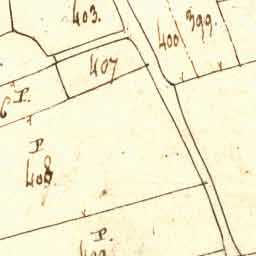 403.
400
399.
407
P.
P
408
P.